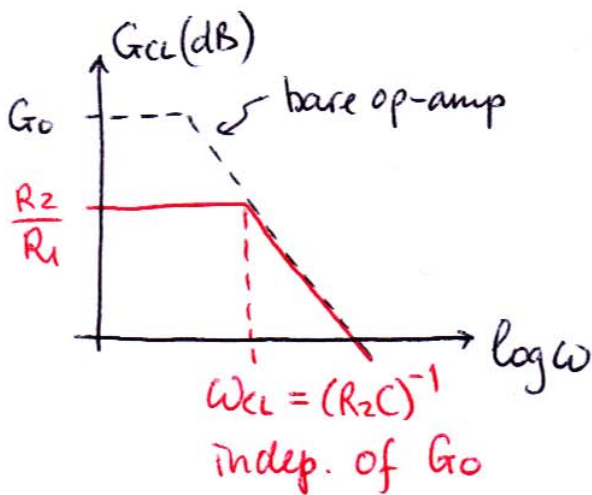 GCL(dB)
G0
bare op-amp
R2
R1
log ω
ωCL = (R2C)⁻¹
indep. of G0